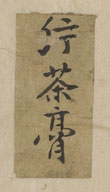 行茶膏